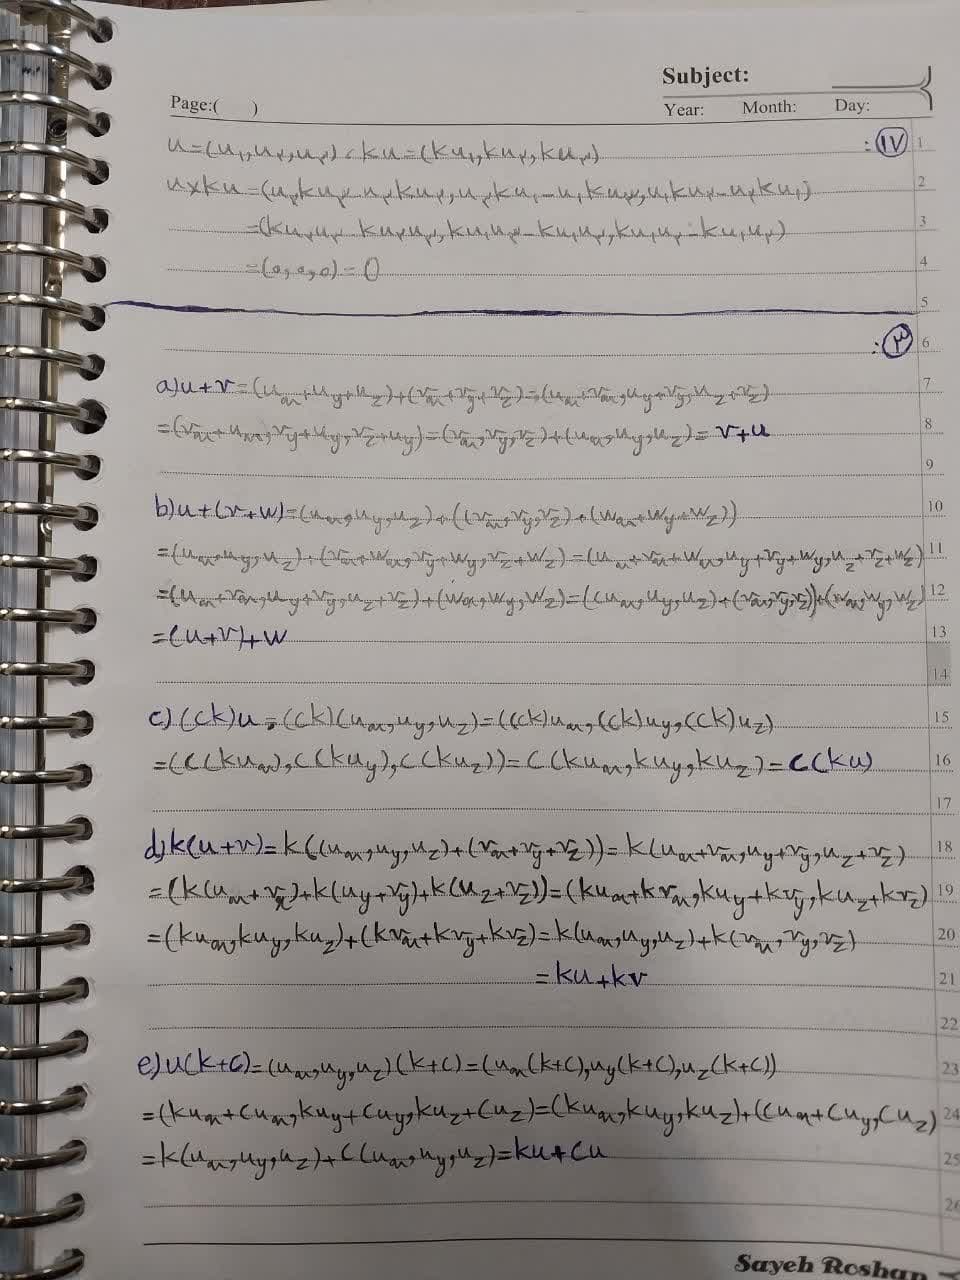 Subject:
Page:(    )
Year:    Month:    Day:
u=(u₁,u₂,u₃), ku=(ku₁,ku₂,ku₃)    :۱۷    1
u×ku=(u₂ku₃-u₃ku₂,u₃ku₁-u₁ku₃,u₁ku₂-u₂ku₁)    2
=(ku₂u₃-ku₂u₃,ku₁u₃-ku₁u₃,ku₁u₂-ku₁u₂)    3
=(0,0,0)=0    4
5
:۳    6
a)u+v=(uₓ+u_y+u_z)+(vₓ+v_y+v_z)=(uₓ+vₓ,u_y+v_y,u_z+v_z)    7
=(vₓ+uₓ,v_y+u_y,v_z+u_y)=(vₓ,v_y,v_z)+(uₓ,u_y,u_z)=v+u    8
9
b)u+(v+w)=(uₓ,u_y,u_z)+((vₓ,v_y,v_z)+(wₓ+w_y+w_z))    10
=(uₓ,u_y,u_z)+(vₓ+wₓ,v_y+w_y,v_z+w_z)=(uₓ+vₓ+wₓ,u_y+v_y+w_y,u_z+v_z+w_z)    11
=(uₓ+vₓ,u_y+v_y,u_z+v_z)+(wₓ,w_y,w_z)=((uₓ,u_y,u_z)+(vₓ,v_y,v_z))+(wₓ,w_y,w_z)    12
=(u+v)+w    13
14
c)(ck)u=(ck)(uₓ,u_y,u_z)=((ck)uₓ,(ck)u_y,(ck)u_z)    15
=(c(kuₓ),c(ku_y),c(ku_z))=c(kuₓ,ku_y,ku_z)=c(ku)    16
17
d)k(u+v)=k((uₓ,u_y,u_z)+(vₓ+v_y+v_z))=k(uₓ+vₓ,u_y+v_y,u_z+v_z)    18
=(k(uₓ+vₓ)+k(u_y+v_y)+k(u_z+v_z))=(kuₓ+kvₓ,ku_y+kv_y,ku_z+kv_z)    19
=(kuₓ,ku_y,ku_z)+(kvₓ+kv_y+kv_z)=k(uₓ,u_y,u_z)+k(vₓ,v_y,v_z)    20
=ku+kv    21
22
e)u(k+c)=(uₓ,u_y,u_z)(k+c)=(uₓ(k+c),u_y(k+c),u_z(k+c))    23
=(kuₓ+cuₓ,ku_y+cu_y,ku_z+cu_z)=(kuₓ,ku_y,ku_z)+(cuₓ+cu_y,cu_z)    24
=k(uₓ,u_y,u_z)+c(uₓ,u_y,u_z)=ku+cu    25
26
Sayeh Roshan